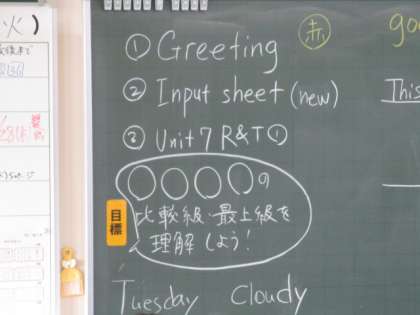 火)
赤
go
① Greeting
② Input sheet (new)
This
③ Unit 7 R&T ①
○○○○の
目標
比較級・最上級を
理解しよう!
Tuesday Cloudy